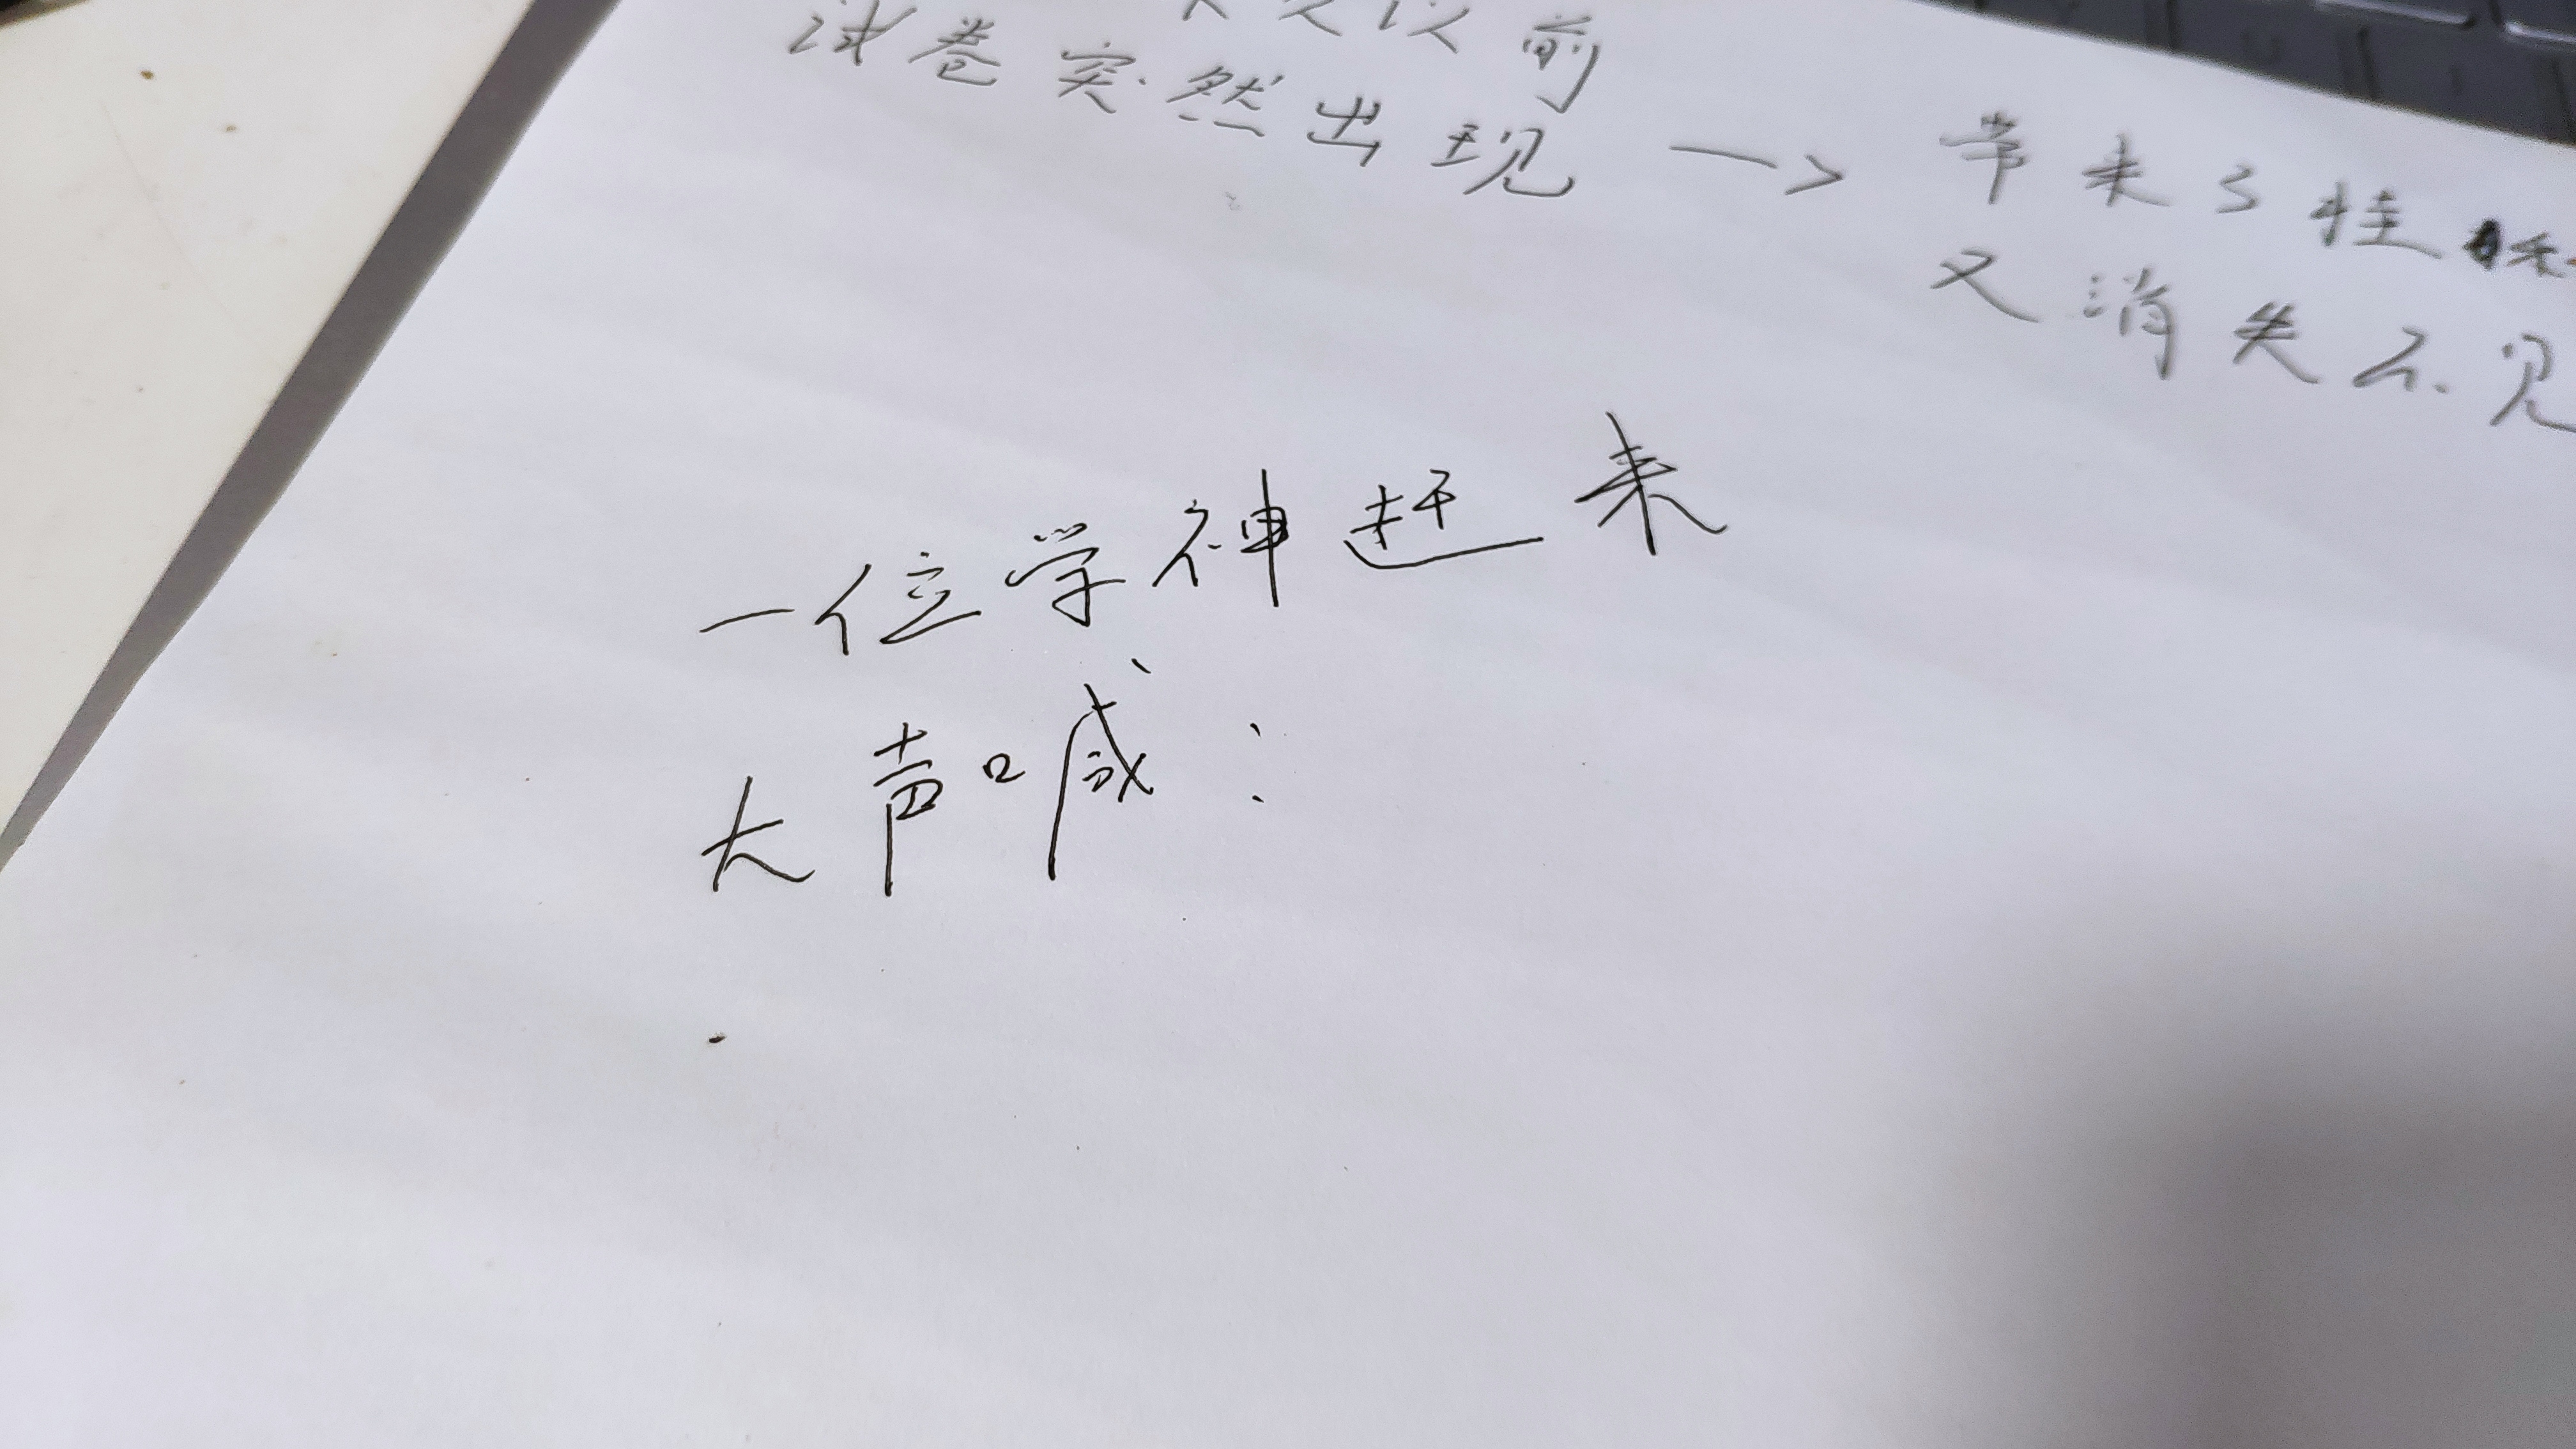 以前
试卷突然出现 —> 带来了怪
又消失不见
一位学神赶来
大声喊：